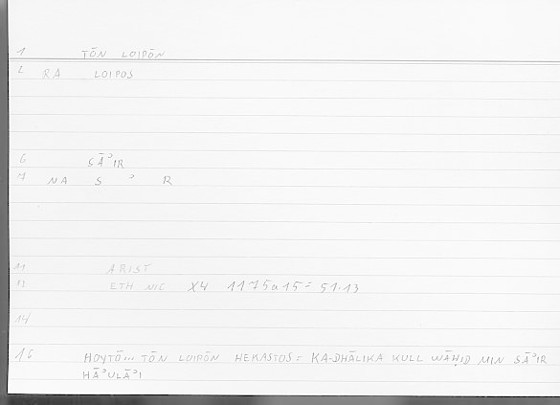 1 TŌN LOIPŌN
2 RA LOIPOS
6 SĀʾIR
7 NA S ʾ R
11 ARIST
12 ETH NIC X4 1175a15 = 51.13
14
16 HOYTŌ... TŌN LOIPŌN HEKASTOS = KA-DHĀLIKA KULL WĀḤID MIN SĀʾIR
HĀʾULĀʾI